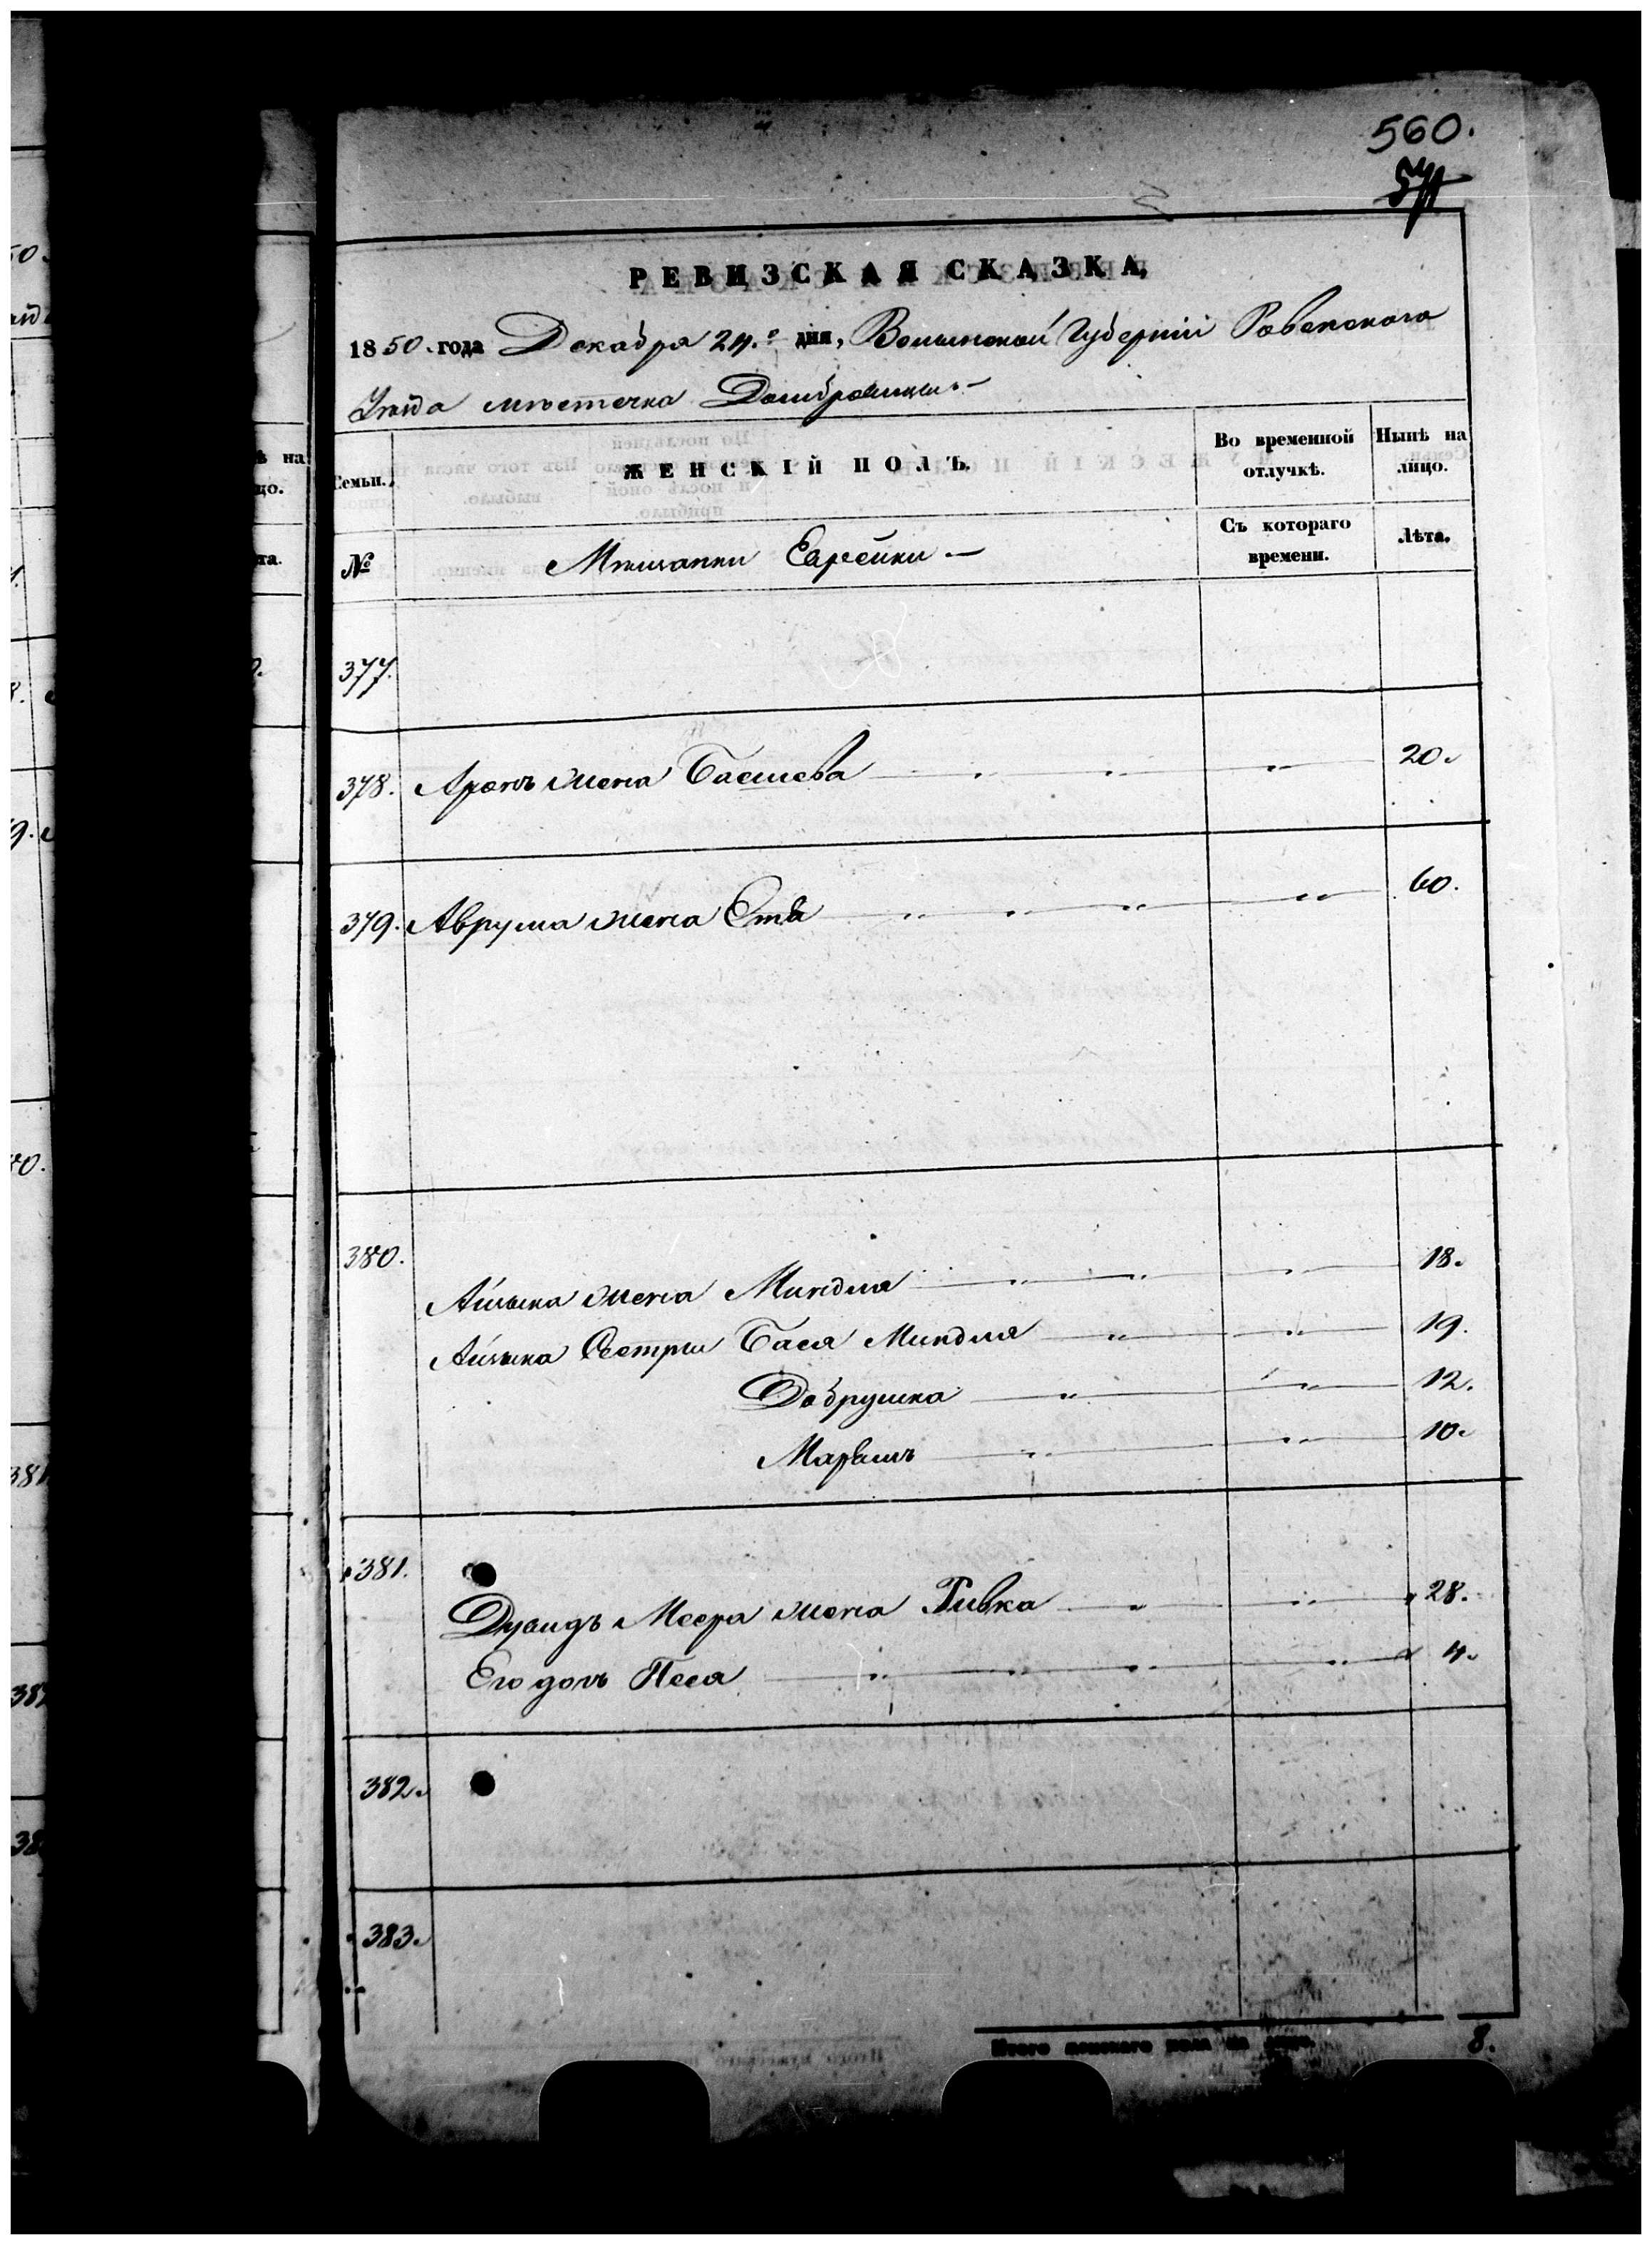 560.
РЕВИЗСКАЯ СКАЗКА,
1850. года Декабря 24.го дня, Волынской Губерніи Ровенского
Уѣзда мѣстечка Домбровицы.—
Семьи.
ЖЕНСКІЙ ПОЛЪ.
Во временной отлучкѣ.
Нынѣ на лицо.
№
Мѣщанки Еврейки —
Съ котораго времени.
Лѣта.
377.
378. Аронъ жена Басшева 20.
379. Аврума жена Етя 60.
380.
Айзыка жена Миндля 18.
Айзыка Сестры Бася Миндля 19.
Добрушка 12.
Маріямъ 10.
381.
Дувидъ Меера жена Ривка 28.
Его дочь Песя 4.
382.
383.
Итого женскаго пола на лицо. 8.